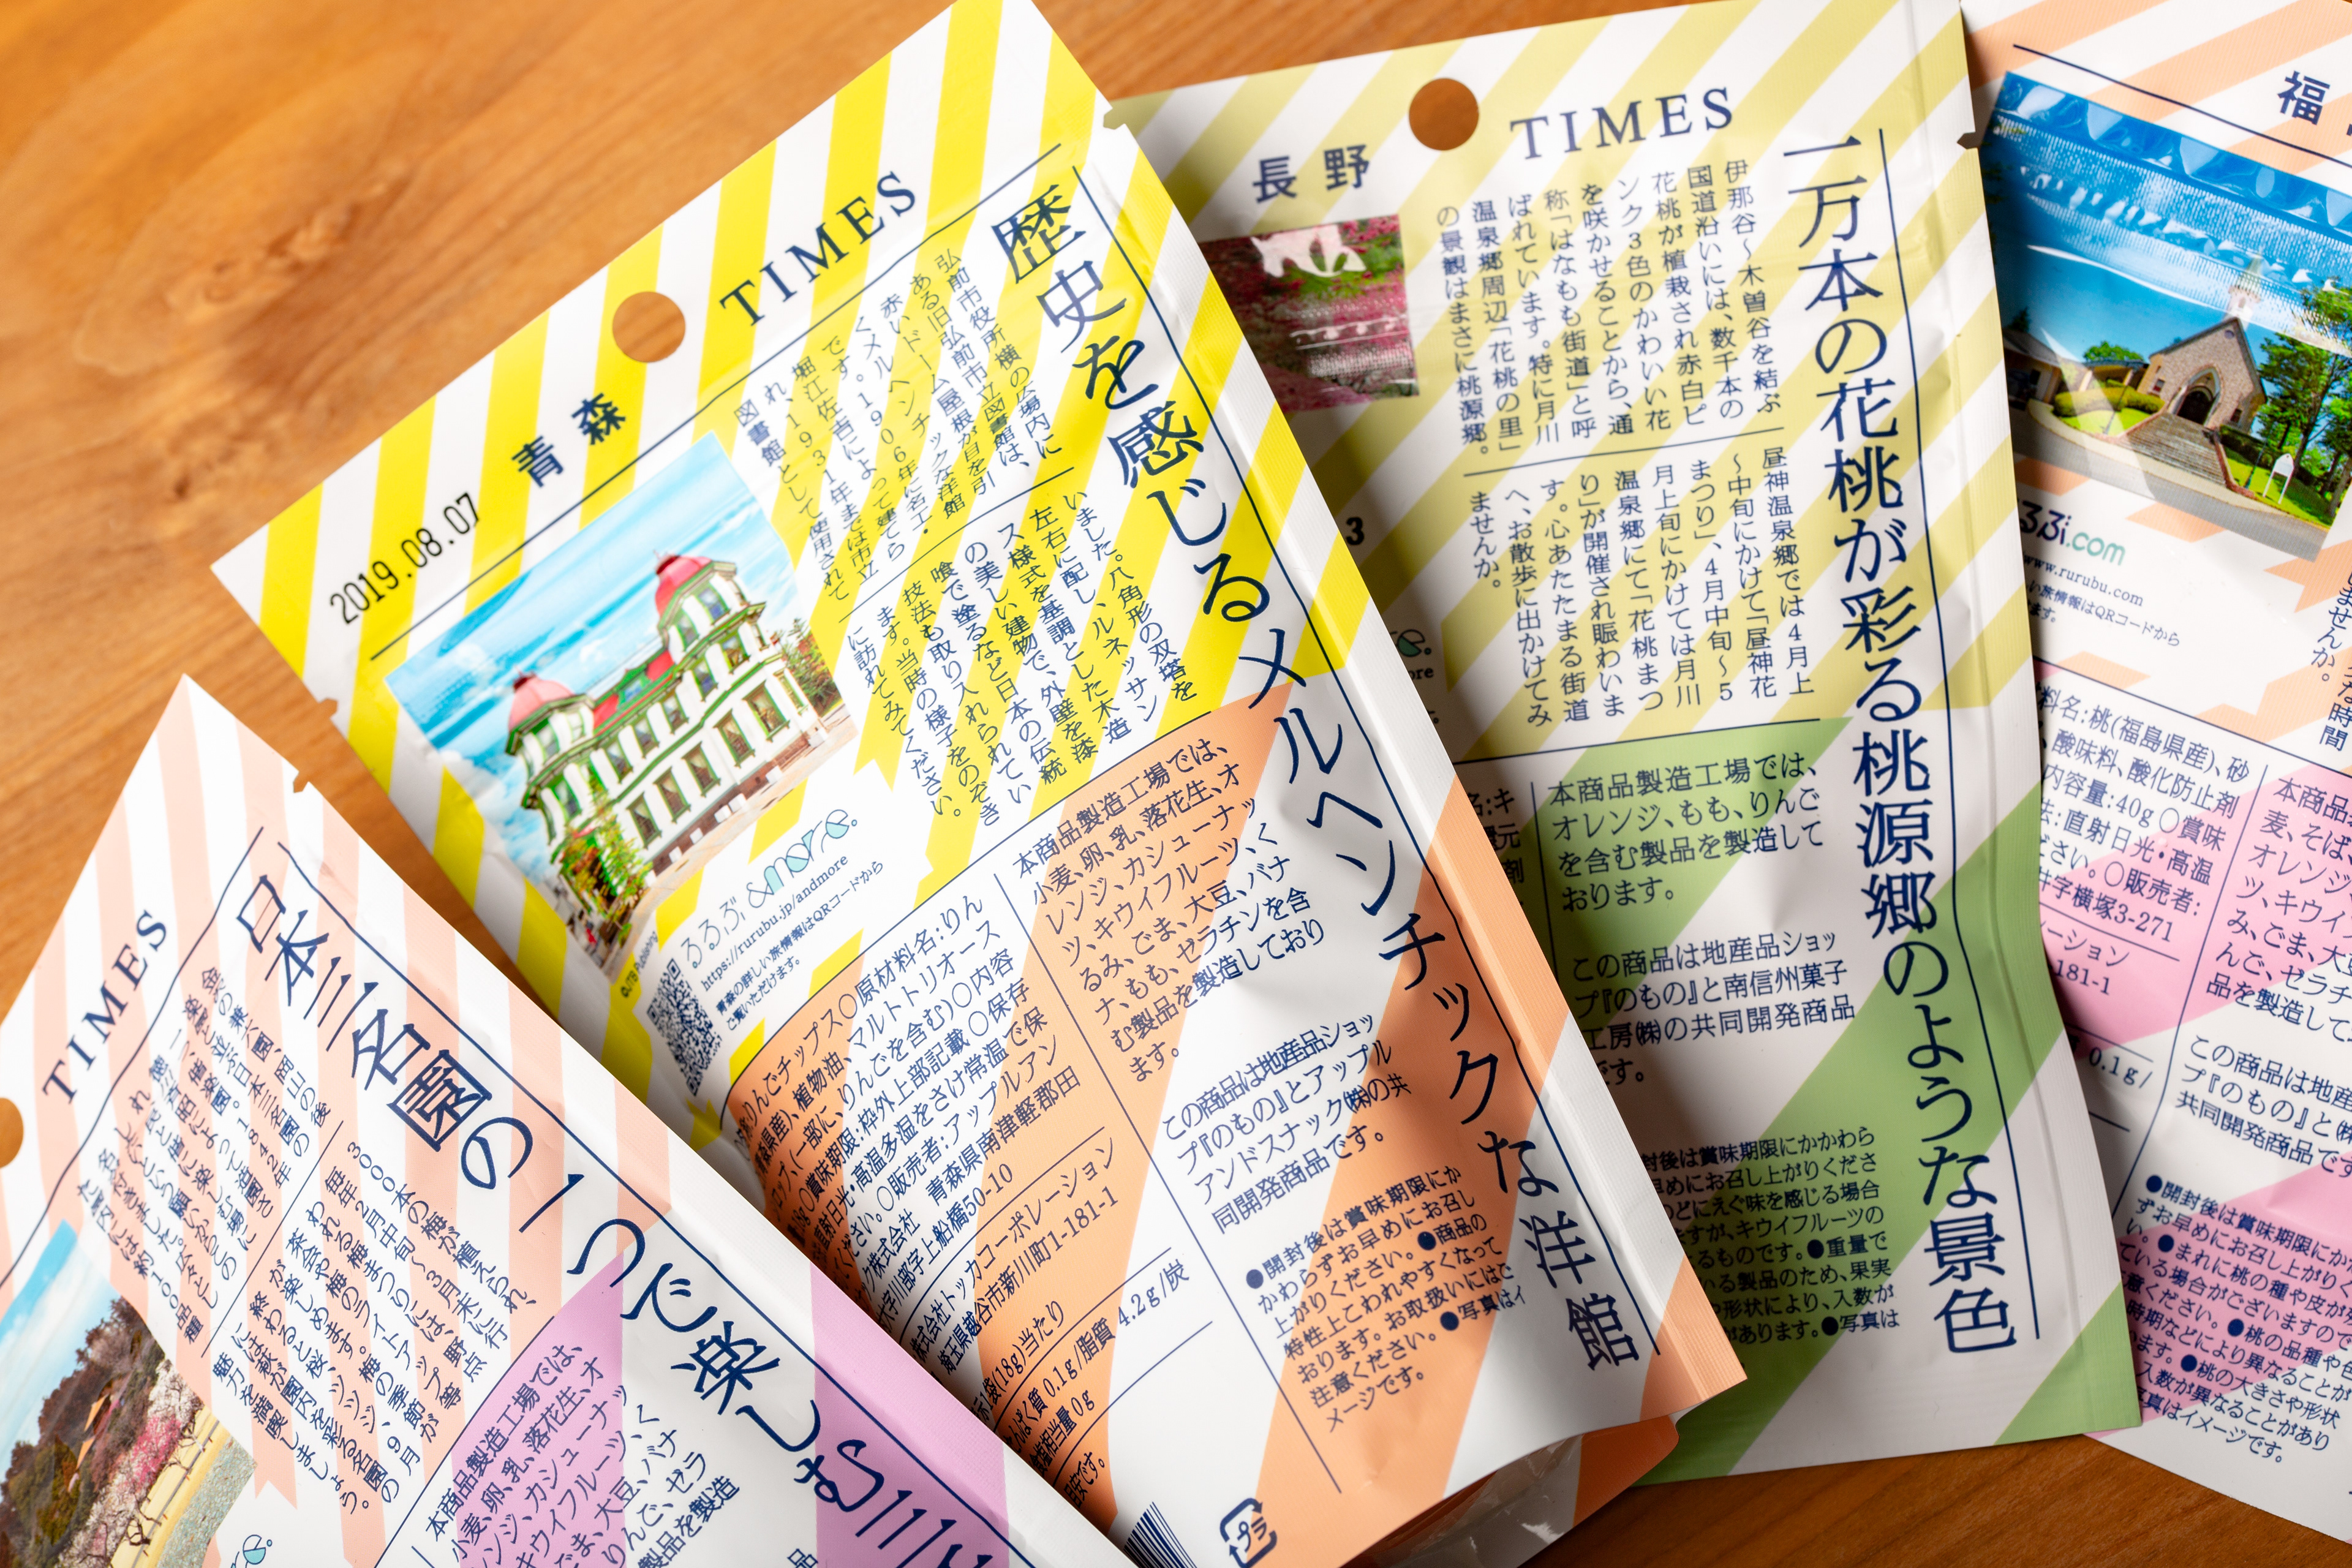 TIMES
日本三名園の一つで楽しむ
金沢の兼六園、岡山の後
楽園と並ぶ日本三名園の
一つ、偕楽園。1842年
名付けました。
3000本の梅が植えられ、
毎年2月中旬〜3月末に行
われる梅まつりには、野点
茶会や梅のライトアップ等
が楽しめます。梅の季節が
終わると桜、ツツジ、9月
には萩が園内を彩る名園の
魅力を満喫しましょう。
本商品製造工場では、
小麦、卵、乳、落花生、オ
レンジ、カシューナッ
キウイフルーツ、く
ごま、大豆、バナ
りんご、ゼラ
製品を製造
TIMES
青森
2019.08.07
歴史を感じるメルヘンチックな洋館
弘前市役所横の広場内に
ある旧弘前市立図書館は、
赤いドーム屋根が目を引
くメルヘンチックな洋館
です。1906年に名工・
堀江佐吉によって建てら
れ、1931年までは市立
図書館として使用されて
いました。八角形の双塔を
左右に配し、ルネッサン
ス様式を基調とした木造
の美しい建物で、外壁を漆
喰で塗るなど日本の伝統
技法も取り入れられてい
ます。当時の様子をのぞき
に訪れてみてください。
©JTB Publishing
るるぶ &more.
https://rurubu.jp/andmore
青森の詳しい旅情報はQRコードから
ご覧いただけます。
りんごチップス〇原材料名:りん
青森県産)、植物油、マルトトリオース
ロップ、(一部に、りんごを含む)〇内容
18g〇賞味期限:枠外上部記載〇保存
直射日光・高温多湿をさけ常温で保
ください。〇販売者:アップルアン
ク株式会社 青森県南津軽郡田
大字川部字上船橋50-10
株式会社トッカコーポレーション
埼玉県越谷市新川町1-181-1
示1袋(18g)当たり
たんぱく質 0.1g/脂質 4.2g/炭
食塩相当量 0g
目安です。
本商品製造工場では、
小麦、卵、乳、落花生、オ
レンジ、カシューナッ
ツ、キウイフルーツ、く
るみ、ごま、大豆、バナ
ナ、もも、ゼラチンを含
む製品を製造しており
ます。
この商品は地産品ショッ
プ『のもの』とアップル
アンドスナック㈱の共
同開発商品です。
●開封後は賞味期限にか
かわらずお早めにお召し
上がりください。●商品の
特性上こわれやすくなって
おります。お取扱いにはご
注意ください。●写真はイ
メージです。
プラ
TIMES
長野
3
一万本の花桃が彩る桃源郷のような景色
伊那谷〜木曽谷を結ぶ
国道沿いには、数千本の
花桃が植栽され赤白ピ
ンク3色のかわいい花
を咲かせることから、通
称「はなもも街道」と呼
ばれています。特に月川
温泉郷周辺「花桃の里」
の景観はまさに桃源郷。
昼神温泉郷では4月上
〜中旬にかけて「昼神花
まつり」、4月中旬〜5
月上旬にかけては月川
温泉郷にて「花桃まつ
り」が開催され賑わいま
す。心あたたまる街道
へ、お散歩に出かけてみ
ませんか。
本商品製造工場では、
オレンジ、もも、りんご
を含む製品を製造して
おります。
この商品は地産品ショッ
プ『のもの』と南信州菓子
工房㈱の共同開発商品
です。
封後は賞味期限にかかわら
早めにお召し上がりくださ
のどにえぐ味を感じる場合
ますが、キウイフルーツの
るものです。●重量で
いる製品のため、果実
や形状により、入数が
があります。●写真は
福
るぶ.com
www.rurubu.com
い旅情報はQRコードから
ませんか。
料名:桃(福島県産)、砂
、酸味料、酸化防止剤
内容量:40g〇賞味
法:直射日光・高温
ださい。〇販売者:
井字横塚3-271
ーション
181-1
0.1g/
本商品
麦、そば、
オレンジ
ツ、キウイ
み、ごま、大豆
んご、ゼラチ
品を製造して
この商品は地産
プ『のもの』と㈱
共同開発商品です
●開封後は賞味期限にか
ずお早めにお召し上がり
い。●まれに桃の種や皮が
ている場合がございますので
意ください。●桃の品種や
時期などにより異なることが
ます。●桃の大きさや形状
入数が異なることがあり
写真はイメージです。